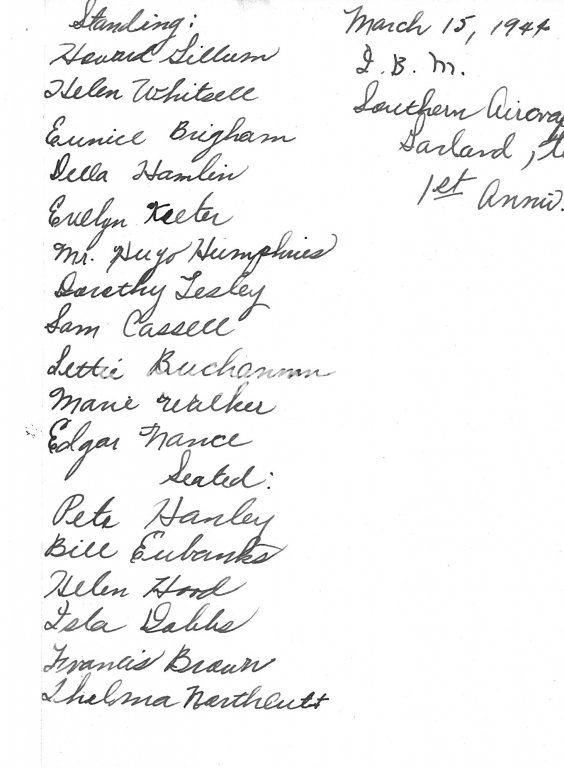 Standing:
Howard Gillum
Helen Whitsell
Eunice Brigham
Della Hamlin
Evelyn Keeter
Mr. Hugo Humphries
Dorothy Lesley
Sam Cassell
Lettie Buchannan
Marie Walker
Edgar Nance
Seated:
Pete Hanley
Bill Eubanks
Helen Hood
Isla Dabbs
Francis Brown
Thelma Northcutt
March 15, 1944
I. B. M.
Southern Airway
Garland, te
1st Anniv.